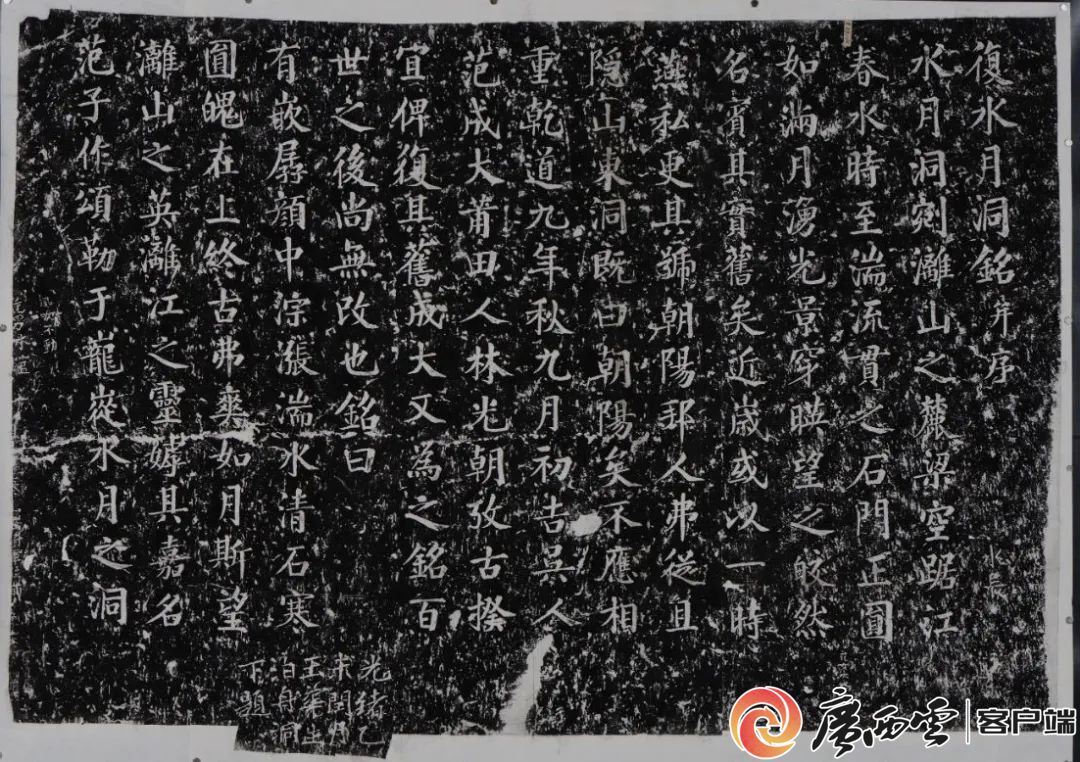 復水月洞銘并序
水月洞剜灕山之麓梁空踞江
春水時至湍流貫之石門正圓
如滿月湧光景穿暎望之皎然
名實其實舊矣近歲或以一時
燕私更其號朝陽邦人弗從且
隠山東洞既曰朝陽矣不應相
重乾道九年秋九月初吉吳人
范成大莆田人林光朝攷古揆
宜俾復其舊成大又為之銘百
世之後尚無改也銘曰
有嵌孱顔中淙漲湍水清石寒
圓魄在上終古弗爽如月斯望
灕山之英灕江之靈嫭其嘉名
范子作頌勒于巃嵸水月之洞
光緒乙
未閏月
泊舟洞
下題
廣西雲
客户端